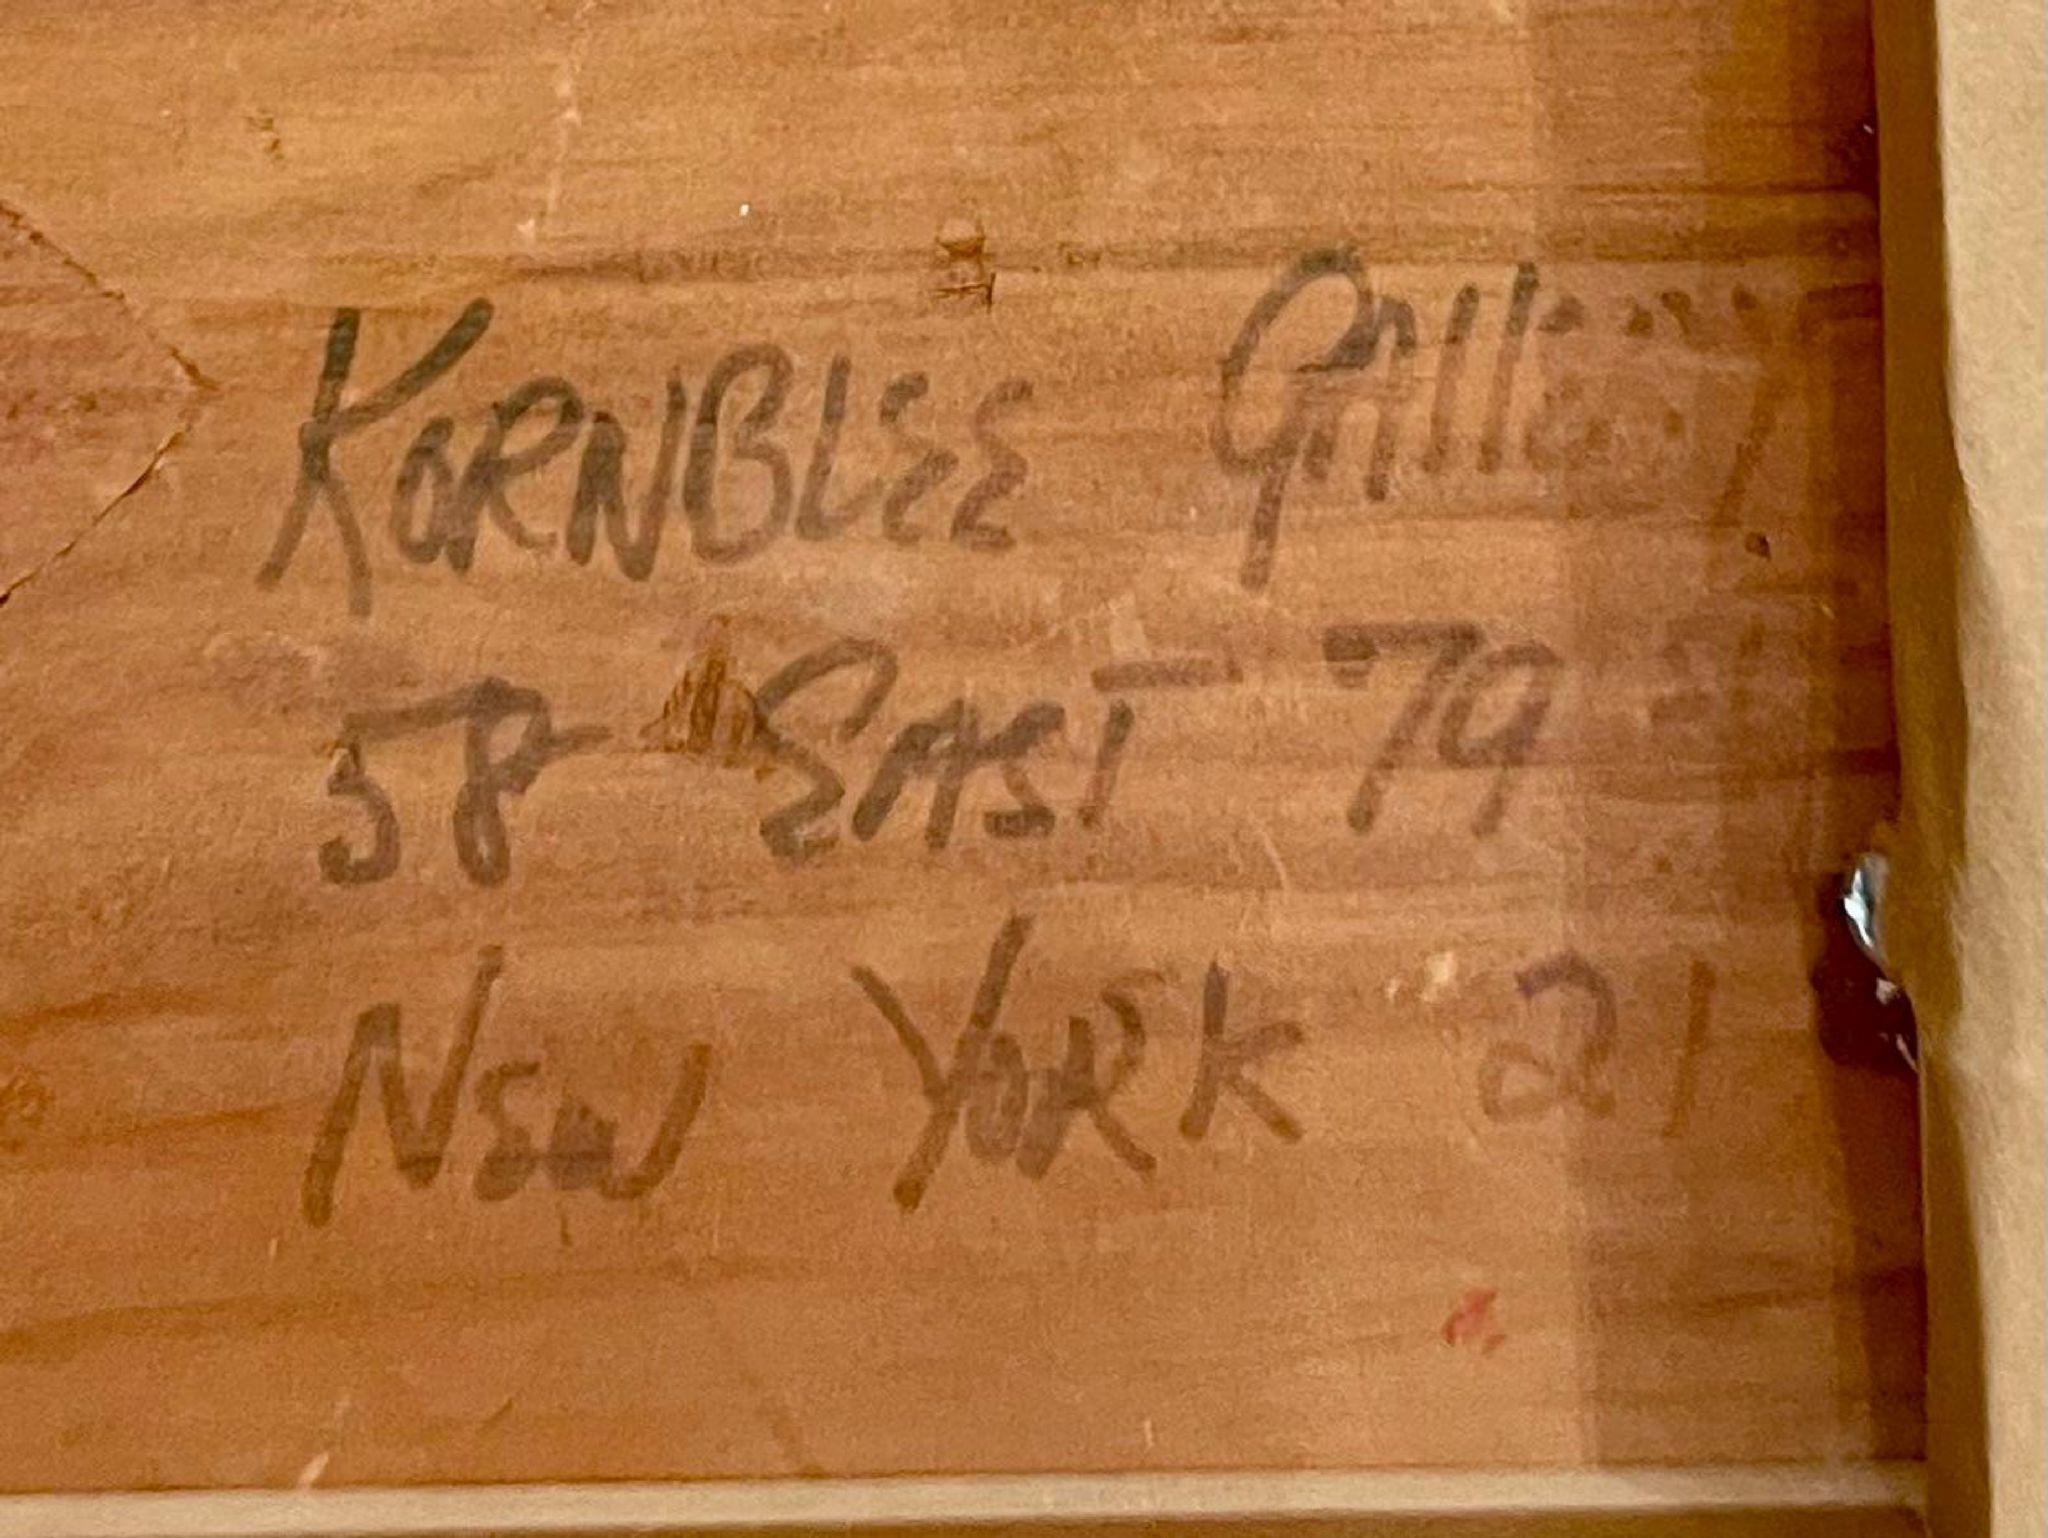 KORNBLEE GAllery
58 EAST 79
NEW YORK 21